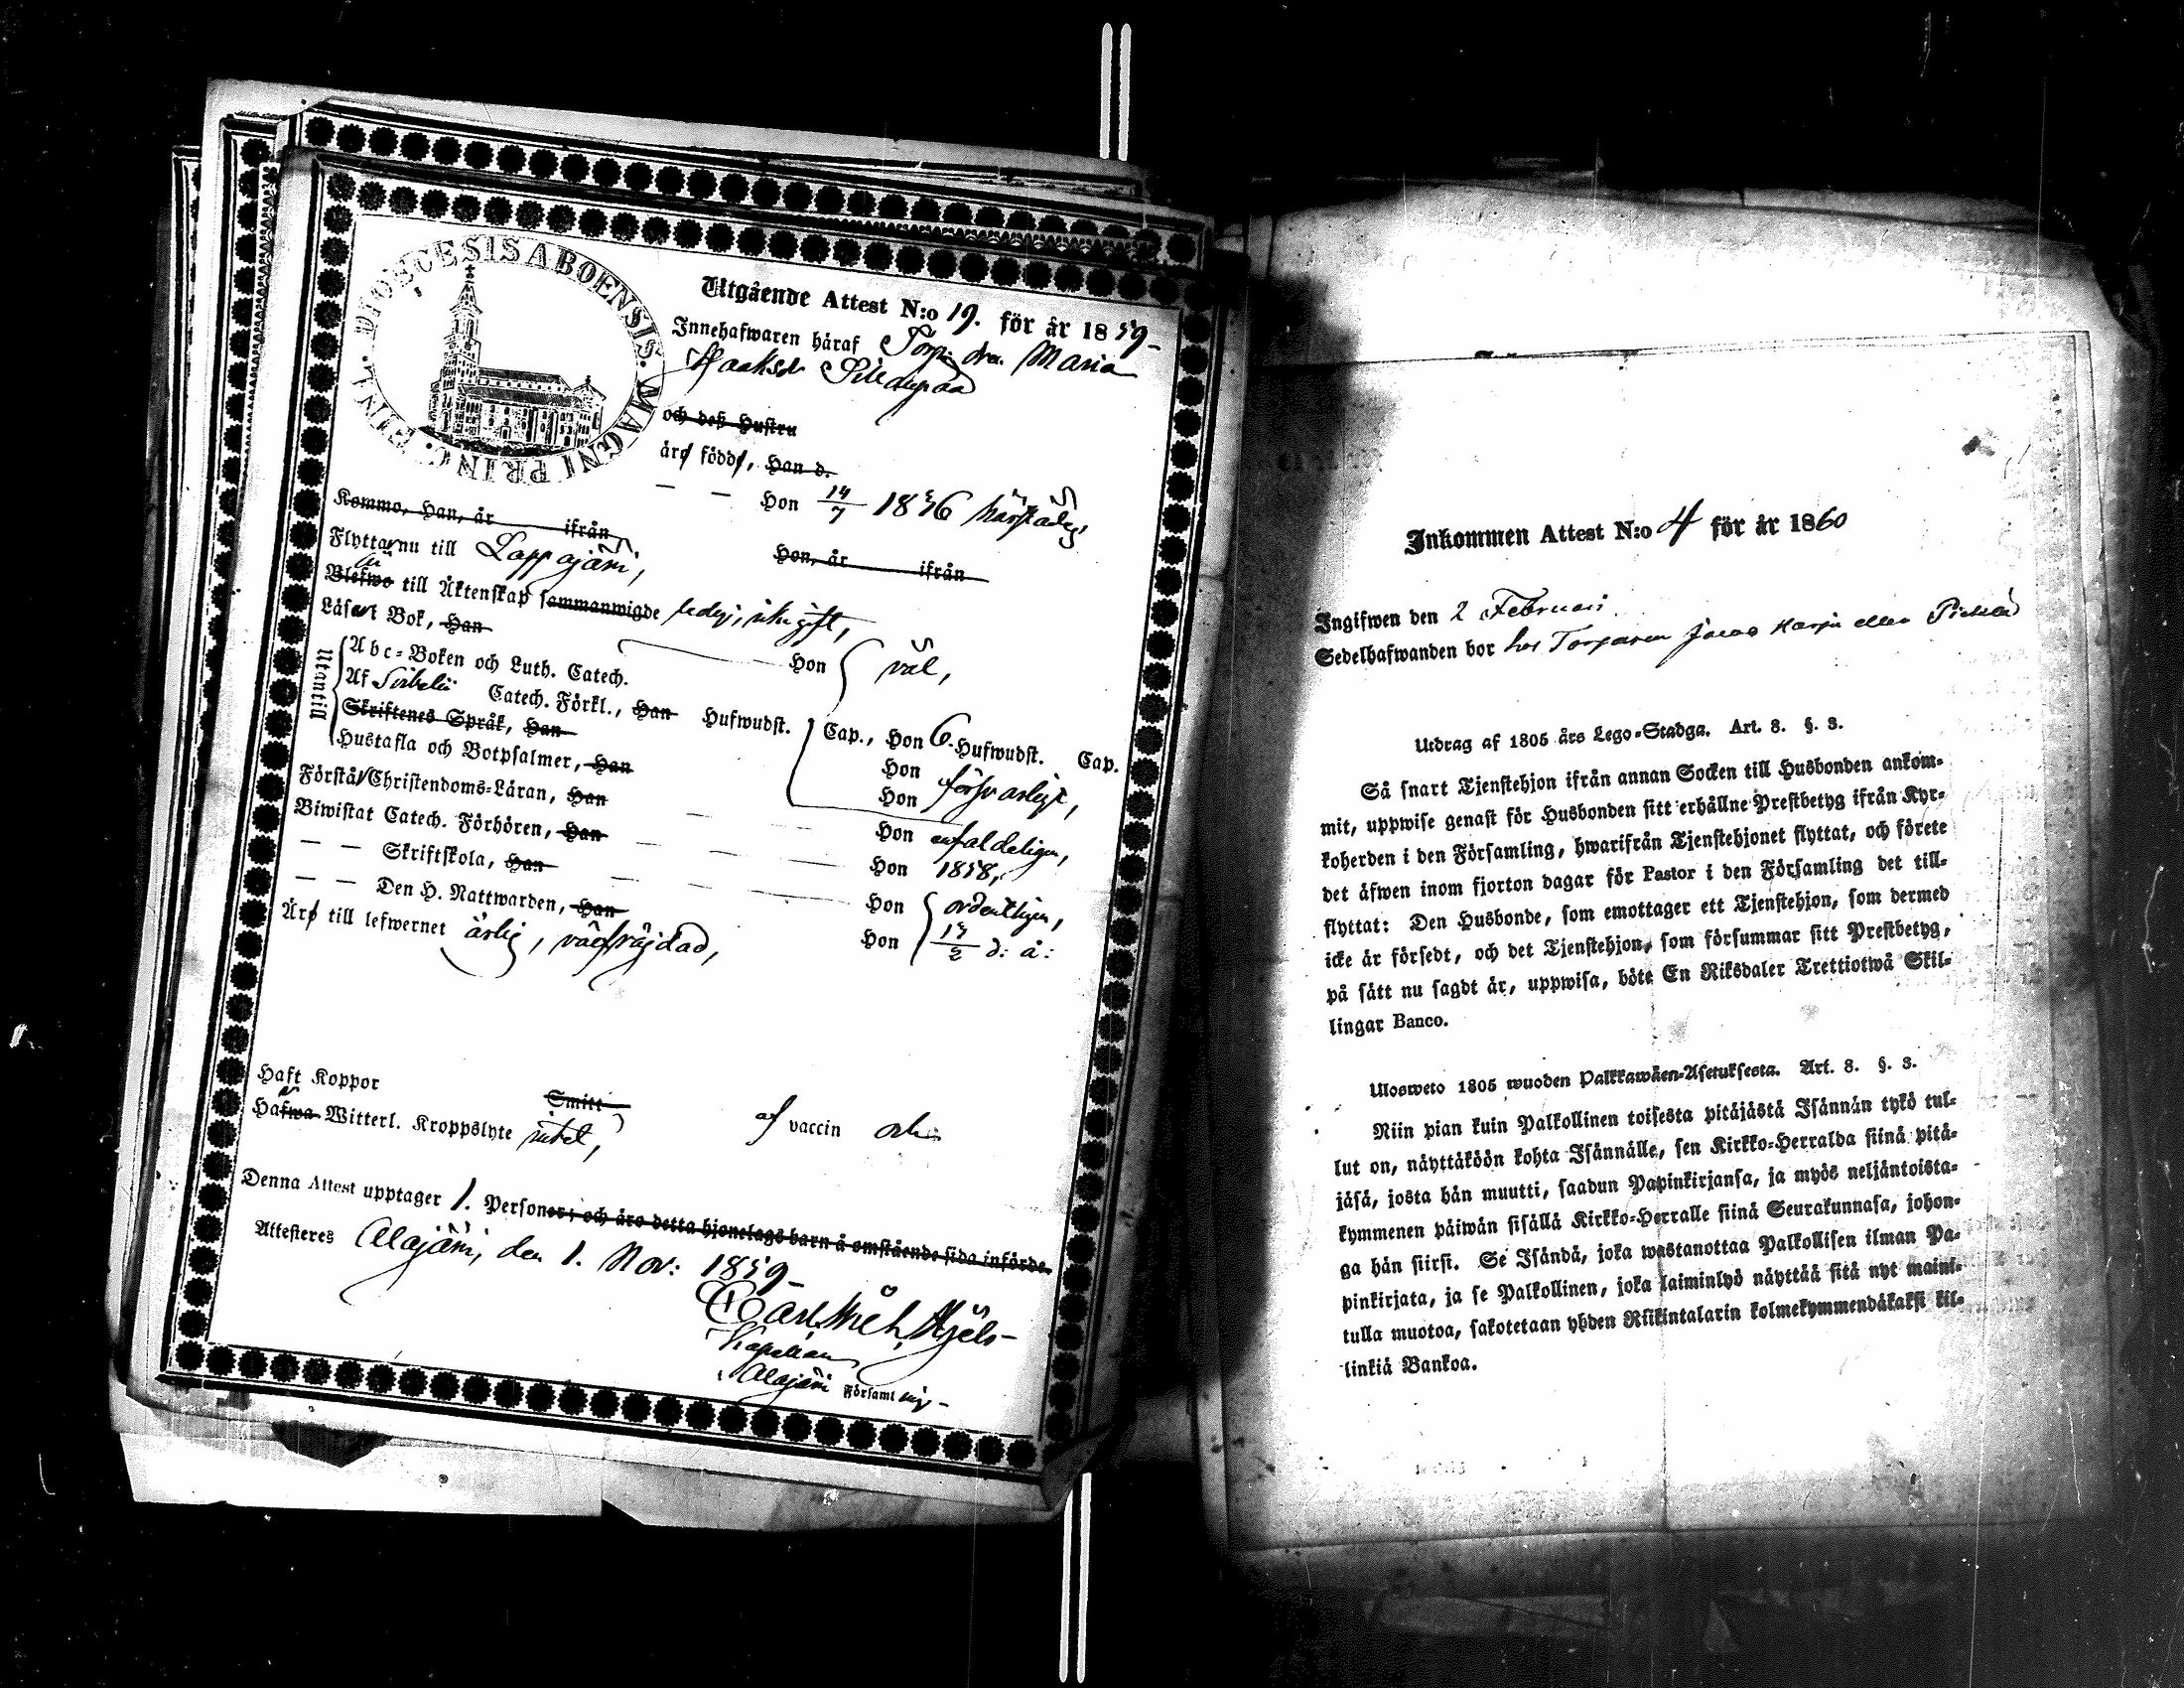 DIOECESIS ABOENSIS. MAGNI PRINC. FINL.
Utgående Attest N:o 19. för år 1859-
Innehafwaren häraf Torp. dr. Maria
Isaksdr
och deß Hustru
äro födde, Han d.
— — Hon 14/7 1836 härstädes,
Kommo, Han, år ifrån
Hon, år ifrån
Flytta nu till Lappajärvi,
Blefwo till Äktenskap sammanwigde ledig, icke gift,
Läsart Bok, Han Hon väl,
Utantill
Abc-Boken och Luth. Catech.
Af Svibelii Catech. Förkl., Han Hufwudst. Cap., Hon 6. Hufwudst. Cap.
Skriftenes Språk, Han Hon
Hustafla och Botpsalmer, Han Hon försvarligt,
Förstår Christendoms-Läran, Han Hon enfaldeligen,
Biwistat Catech. Förhören, Han — — Hon 1858,
— — Skriftskola, Han — — Hon ordentligen,
— — Den H. Nattwarden, Han Hon d: å:
Äro till lefwernet ärlig, välfräjdad,
Haft Koppor Smitt af vaccin och
Hafwa Witterl. Kroppslyte intet,
Denna Attest upptager 1. Personer; och äro detta hjonelags barn å omstående sida införde.
Attesteres Alajärvi, den 1. Nov: 1859-
Kapellan
Alajärvi Församl ing-
Inkommen Attest N:o 4 för år 1860
Ingifwen den 2 Februari
Sedelhafwanden bor hos Torparen Jacob Harju eller
Utdrag af 1805 års Lego-Stadga. Art. 8. §. 3.
Så snart Tjenstehjon ifrån annan Socken till Husbonden ankom-
mit, uppwise genast för Husbonden sitt erhållne Prestbetyg ifrån Kyr-
koherden i den Församling, hwarifrån Tjenstehjonet flyttat, och förete
det äfwen inom fjorton dagar för Pastor i den Församling det till-
flyttat: Den Husbonde, som emottager ett Tjenstehjon, som dermed
icke är försedt, och det Tjenstehjon, som försummar sitt Prestbetyg,
på sätt nu sagdt är, uppwisa, böte En Riksdaler Trettiotwå Skil-
lingar Banco.
Ulosweto 1805 wuoden Palkkawäen-Asetuksesta. Art. 8. §. 3.
Niin pian kuin Palkollinen toisesta pitäjästä Isännän tykö tul-
lut on, näyttäköön kohta Isännälle, sen Kirkko-Herralda siinä pitä-
jäsä, josta hän muutti, saadun Papinkirjansa, ja myös neljäntoista-
kymmenen päiwän sisällä Kirkko-Herralle siinä Seurakunnasa, johon-
ga hän siirsi. Se Isändä, joka wastanottaa Palkollisen ilman Pa-
pinkirjata, ja se Palkollinen, joka laiminlyö näyttää sitä nyt maini-
tulla muotoa, sakotetaan yhden Riikintalarin kolmekymmendäkaksi kil-
linkiä Bankoa.